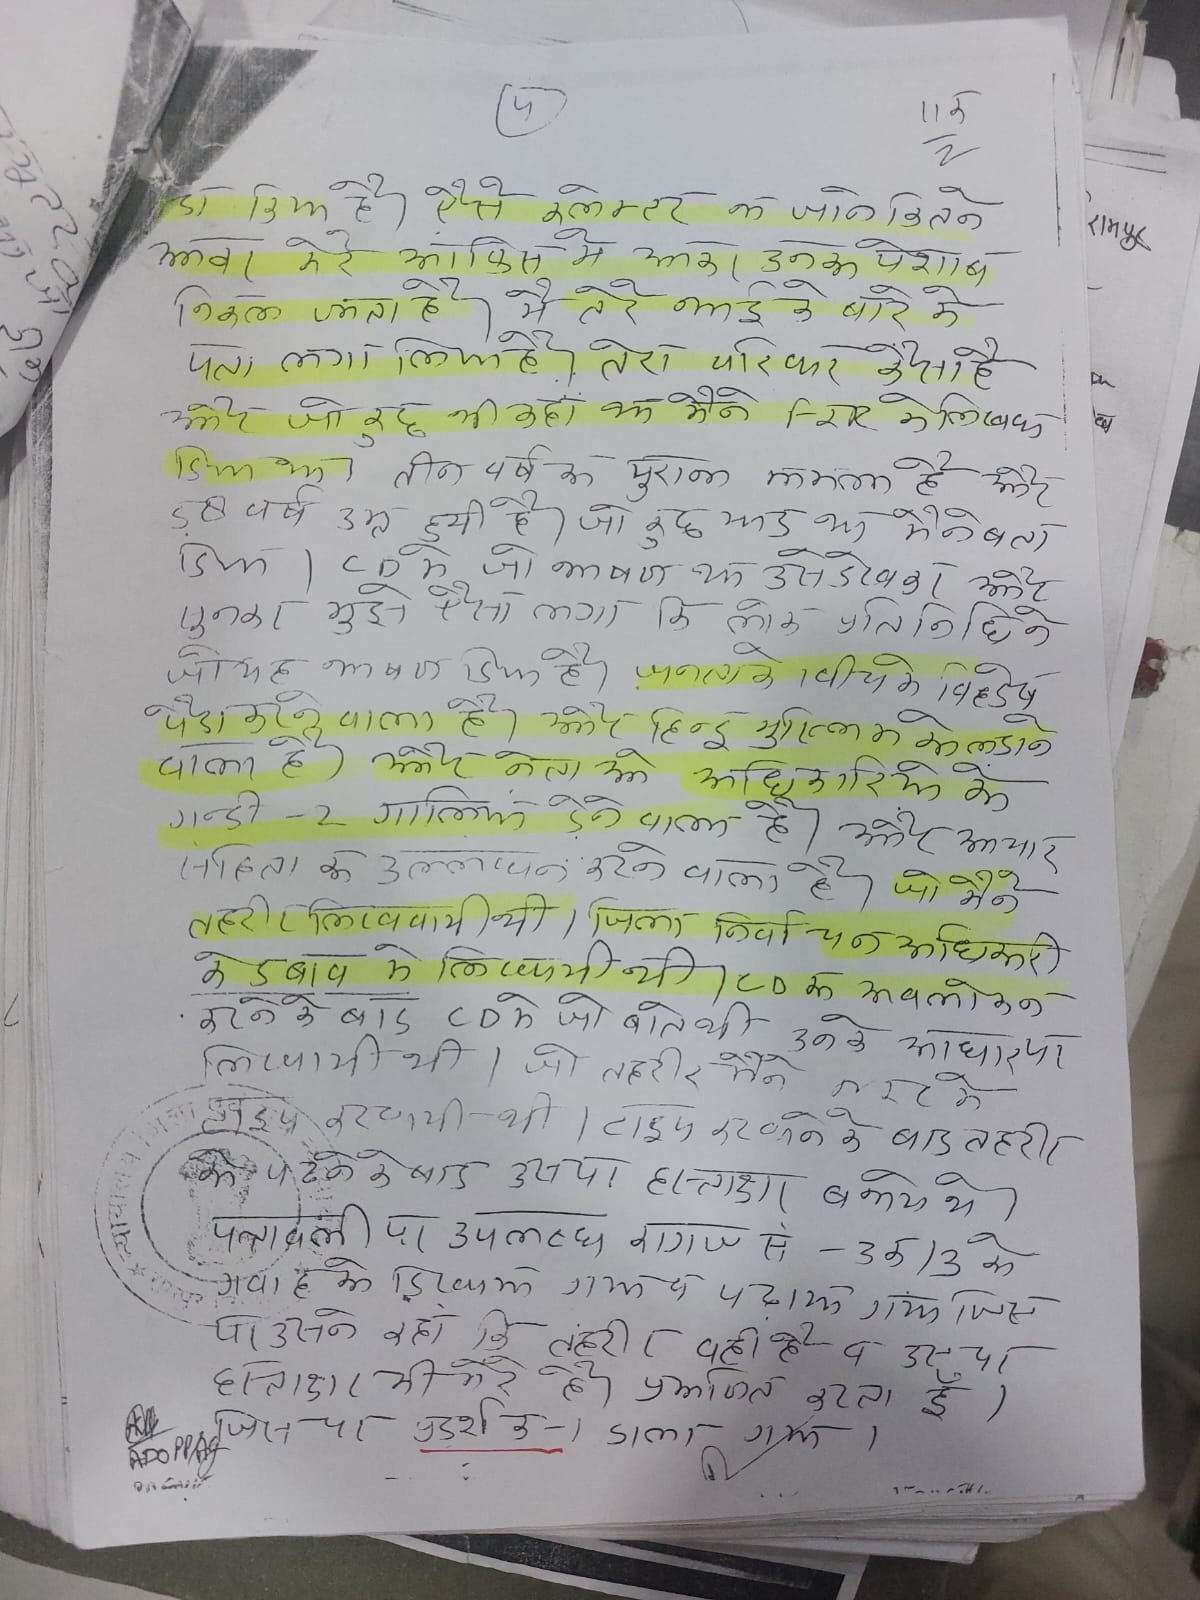 4
11क
2
डा किया है। ऐसे कलेक्टर न जाने कितने
आकर मेरे आफिस में आकर उनका पेशाब
निकल जाता है। मैं तेरे भाई के बारे में
पता लगा लिया है। तेरा परिवार कैसा है
और जो कुछ भी कहा था मैंने FIR में लिखवा
दिया था। तीन वर्ष का पुराना मामला है और
वर्ष उम्र हुयी है। जो कुछ याद था मैंने बता
दिया। CD में जो भाषण था उसे देखकर और
सुनकर मुझे ऐसा लगा कि लोक प्रतिनिधि ने
जो यह भाषण दिया है। जनता के बीच के विद्वेष
पैदा करने वाला है। और हिन्दू मुस्लिम को लड़ाने
वाला है। और नेता ओ अधिकारियो को
गन्दी -2 गालियां देने वाला है। और आचार
संहिता का उल्लघन करने वाला है। जो मैंने
तहरीर लिखवायी थी। जिला निर्वाचन अधिकारी
के दबाव में लिखायी थी। CD का अवलोकन
करने के बाद CD में जो बाते थी उनके आधार पर
लिखायी थी। जो तहरीर मैंने में
टाइप करवायी थी। टाइप करवाने के बाद तहरीर
को पढने के बाद उस पर हस्ताक्षर बनाये थे।
पत्रावली पर उपलब्ध कागज सं - 3क/3 को
गवाह को दिखाया गया व पढ़ाया गया जिस
पर उसने कहा कि तहरीर वही है व उस पर
हस्ताक्षर भी मेरे है। प्रमाणित करता हूँ।
जिस पर प्रदर्श क-1 डाला गया।
रामपुर